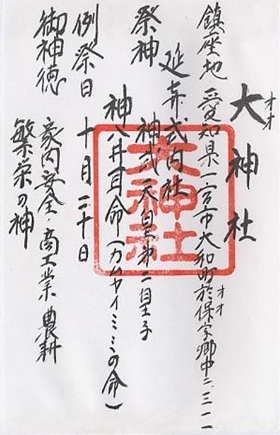 大神社
オオ
鎮座地 愛知県一宮市大和町於保字郷中二、三一一
オオ
延喜式内社
祭神 神武天皇第二皇子
神八井耳命（カムヤイミミの命）
例祭日 十月二十日
御神徳 家内安全・商工業・農耕
繁栄の神
大神社